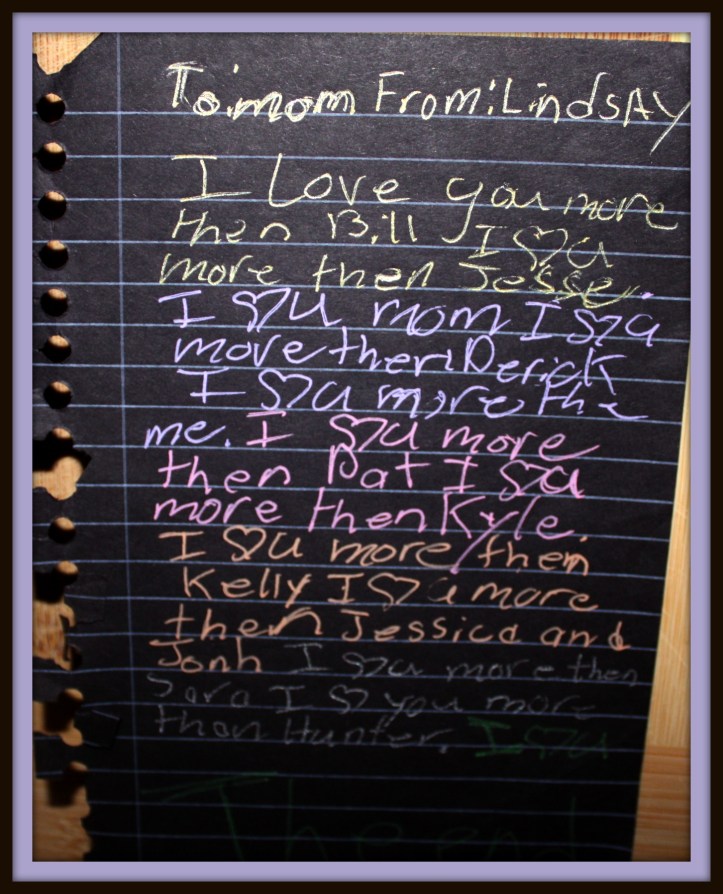 To: mom From: LindsAy
I Love you more
then Bill I ♡ u
more then Jesse.
I ♡ u mom I ♡ u
more then Derick
I ♡ u more the
me. I ♡ u more
then Pat I ♡ u
more then Kyle.
I ♡ u more then
Kelly I ♡ u more
then Jessica and
Jonh I ♡ u more then
Sara I ♡ you more
than Hunter. I ♡ u
The end